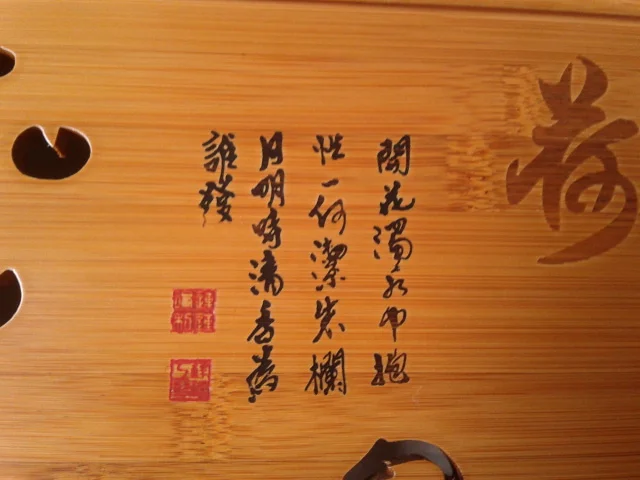 荷
開花濁水中抱
性一何潔朱欄
月明時清香為
誰發